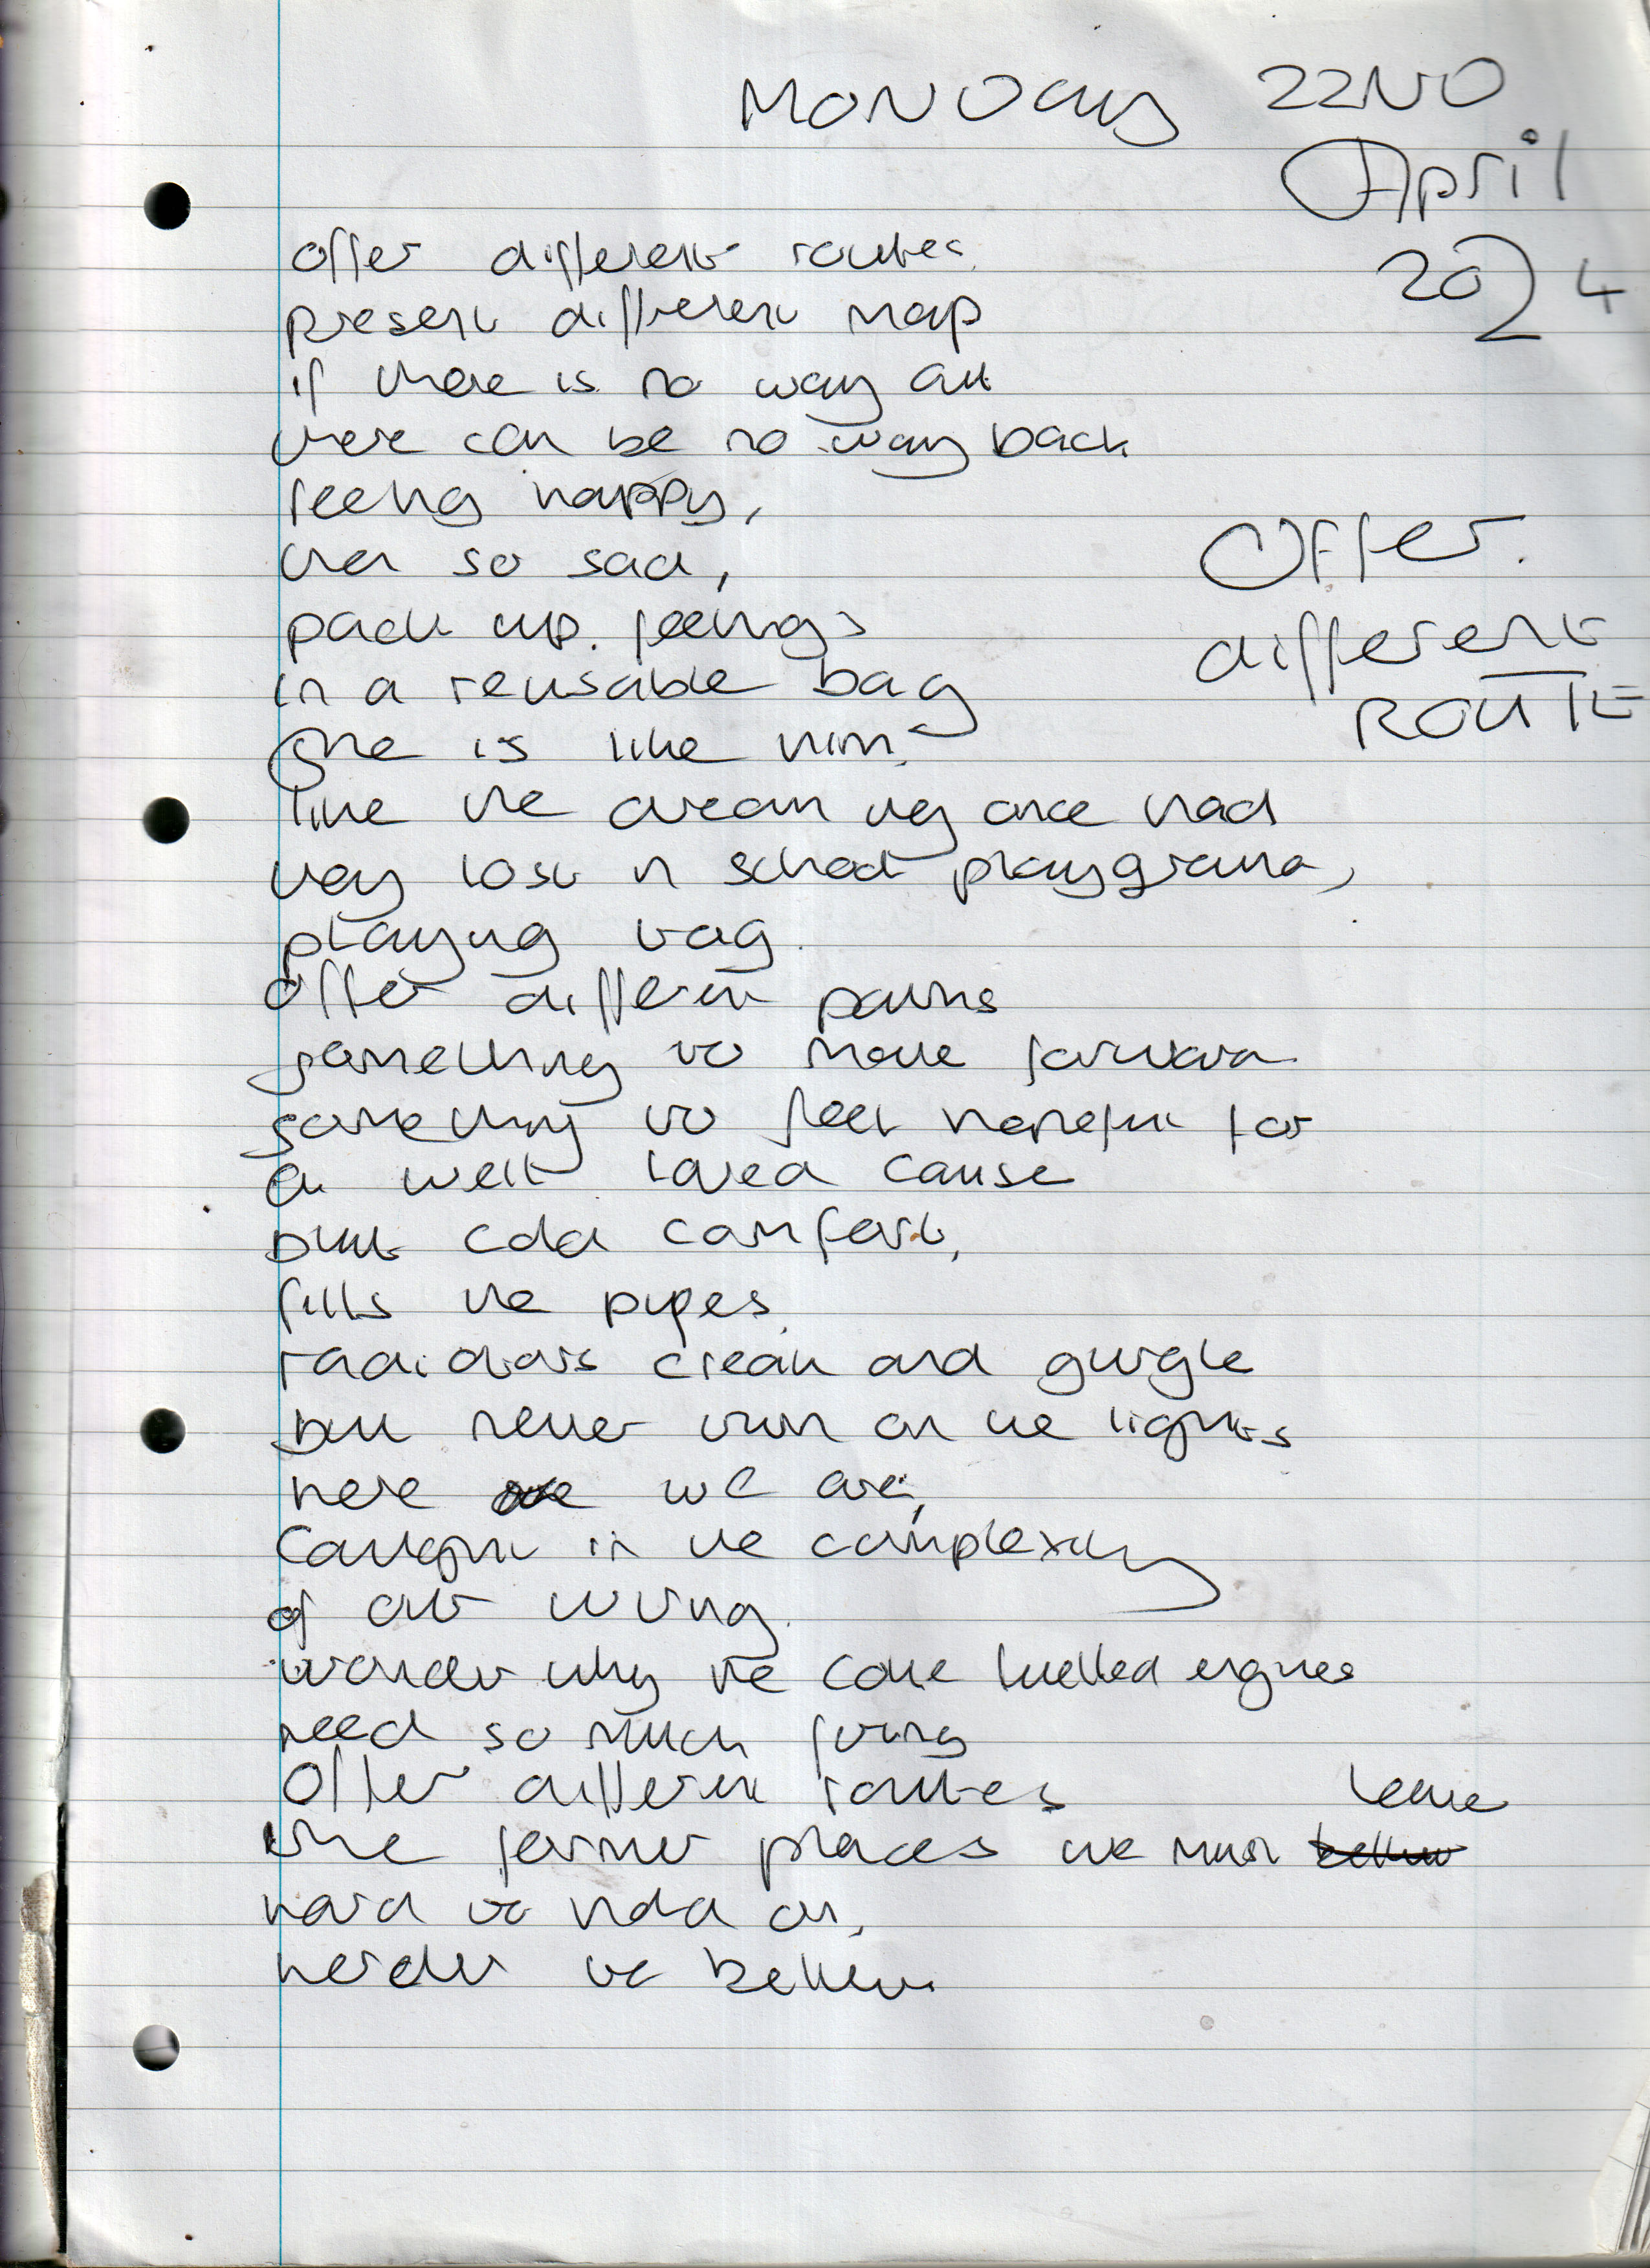 MONDAY 22ND
April
2024
Offer different routes
present different map
if there is no way out
there can be no way back
feeling happy,
then so sad,
pack up feelings
in a reusable bag
She is like him
like the dream they once had
they lost in school playground,
playing tag
Offer.
different
ROUTE
Offer different paths
something to move forward
something to feel hopeful for
a well loved cause
but cold comfort,
fills the pipes
radiators creak and gurgle
but never turn on the lights
here we are,
Caught in the complexity
of our wiring.
wonder why the fuelled engines
need so much firing
Offer different routes
the former places we must leave
hard to hold on,
harder to believe